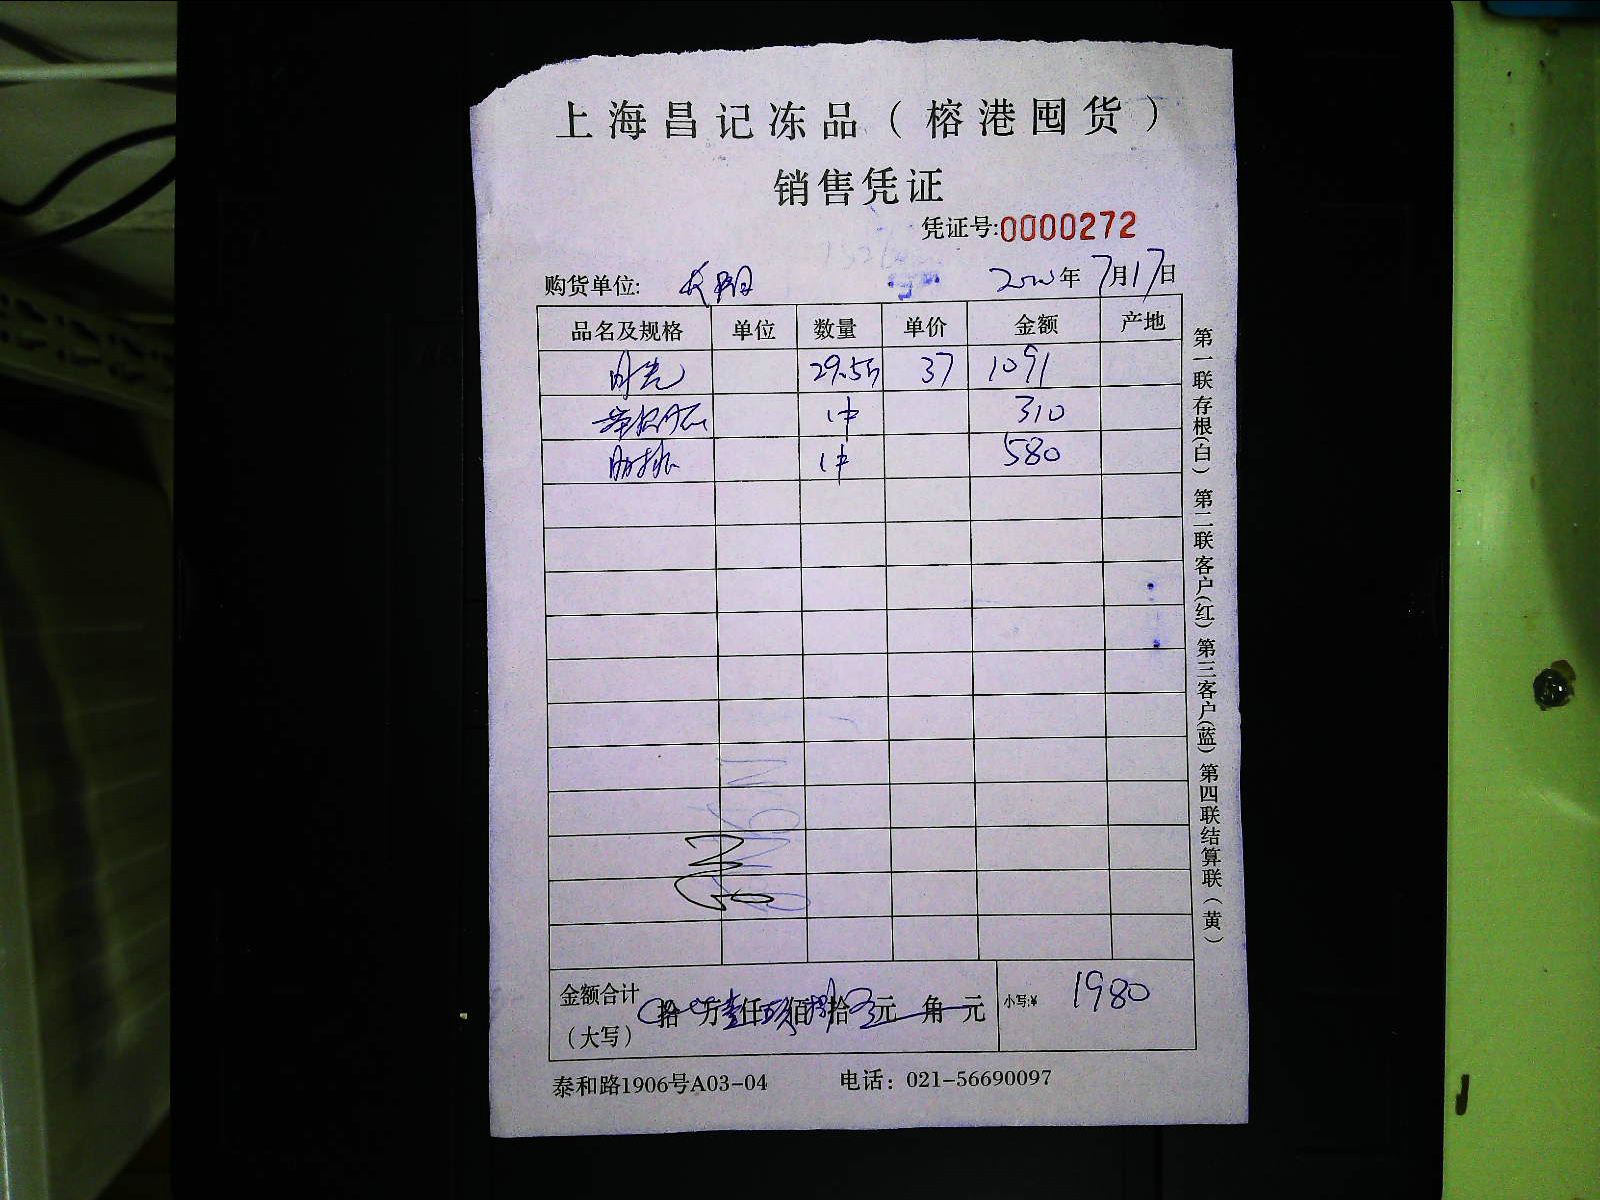 上海昌记冻品（榕港囤货）
销售凭证
凭证号:0000272
购货单位: 年7月17日
品名及规格 单位 数量 单价 金额 产地
29.55 37 1091
1件 310
肋排 1件 580
金额合计 拾 万壹仟玖佰捌拾 元 角 元 小写:¥ 1980
（大写）
泰和路1906号A03-04 电话：021-56690097
第一联存根(白) 第二联客户(红) 第三客户(蓝) 第四联结算联(黄)